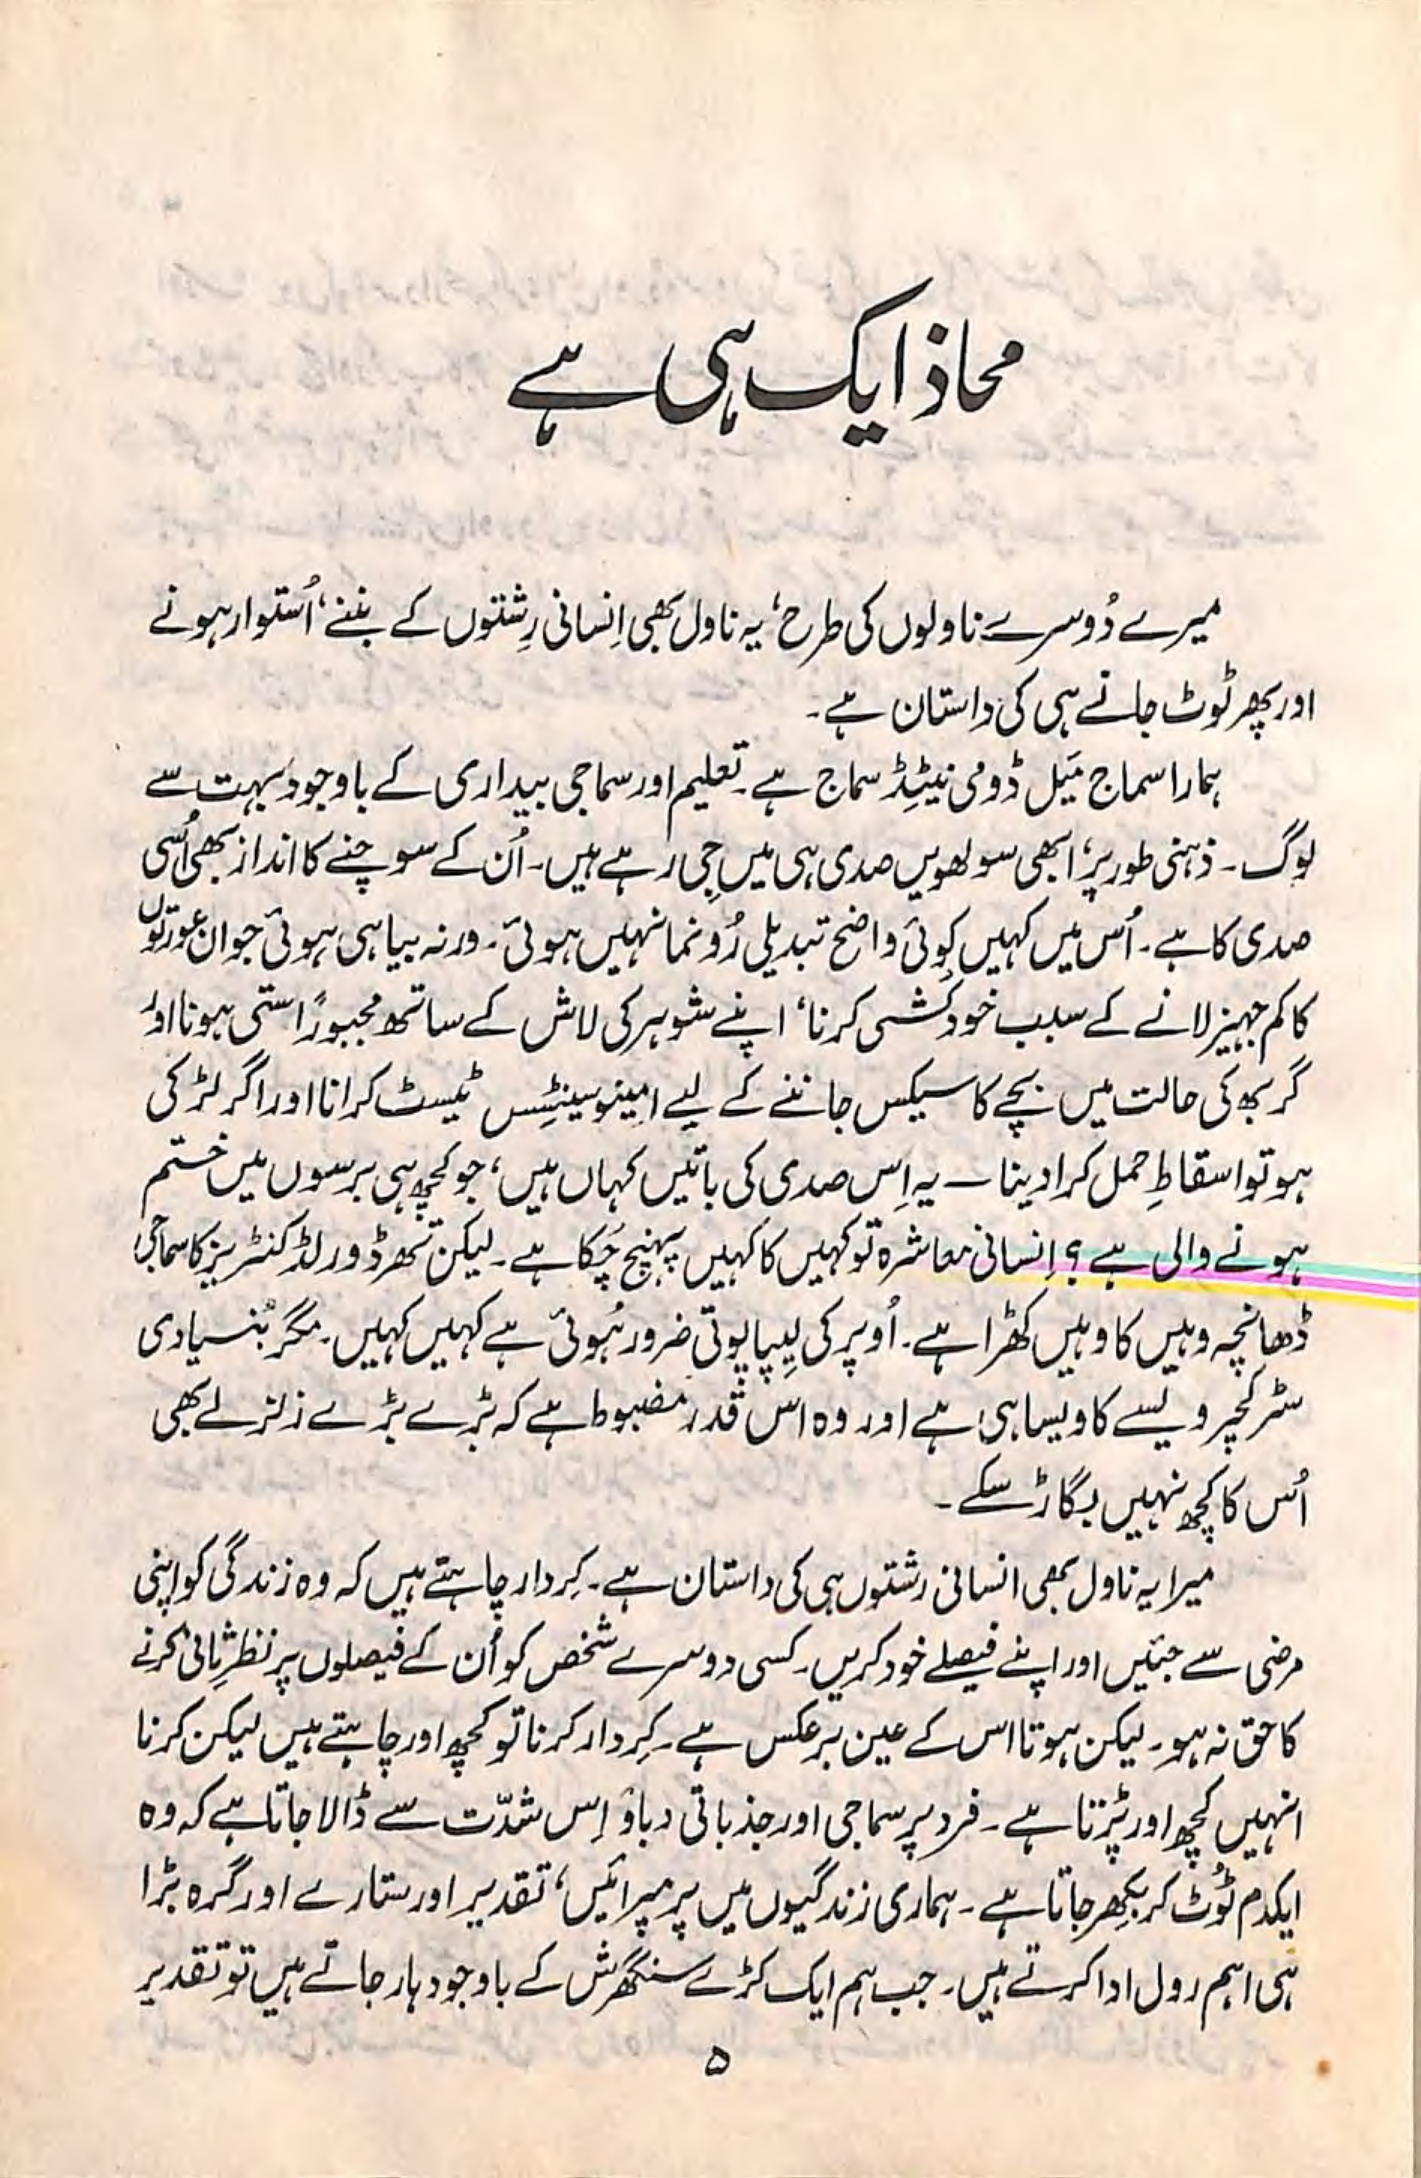 محاذ ایک ہی ہے
میرے دُوسرے ناولوں کی طرح، یہ ناول بھی اِنسانی رِشتوں کے بننے، اُستوار ہونے
اور پھر ٹوٹ جانے ہی کی داستان ہے۔
ہمارا سماج مَیل ڈومی نیٹِڈ سماج ہے۔ تعلیم اور سماجی بیداری کے باوجود بہت سے
لوگ۔ ذہنی طور پر، ابھی سولھویں صدی ہی میں جی رہے ہیں۔ اُن کے سوچنے کا انداز بھی اُسی
صدی کا ہے۔ اُس میں کہیں کوئی واضح تبدیلی رُونما نہیں ہوئی۔ ورنہ بیاہی ہوئی جوان عورتوں
کا کم جہیز لانے کے سبب خودکُشی کرنا، اپنے شوہر کی لاش کے ساتھ مجبوراً ستی ہونا اور
گربھ کی حالت میں بچے کا سیکس جاننے کے لیے امِینوسینٹِسِس ٹیسٹ کرانا اور اگر لڑکی
ہو تو اسقاطِ حمل کرا دینا — یہ اِس صدی کی باتیں کہاں ہیں، جو کچھ ہی برسوں میں ختم
ہونے والی ہے؟ اِنسانی معاشرہ تو کہیں کا کہیں پہنچ چُکا ہے۔ لیکن تھرڈ ورلڈ کنٹریز کا سماجی
ڈھانچہ وہیں کا وہیں کھڑا ہے۔ اُوپر کی لِیپا پوتی ضرور ہُوئی ہے کہیں کہیں۔ مگر بُنیادی
سٹرکچر ویسے کا ویسا ہی ہے اور وہ اس قدر مضبوط ہے کہ بڑے بڑے زلزلے بھی
اُس کا کچھ نہیں بگاڑ سکے۔
میرا یہ ناول بھی انسانی رشتوں ہی کی داستان ہے۔ کِردار چاہتے ہیں کہ وہ زندگی کو اپنی
مرضی سے جئیں اور اپنے فیصلے خود کریں۔ کسی دوسرے شخص کو اُن کے فیصلوں پر نظرِثانی کرنے
کا حق نہ ہو۔ لیکن ہوتا اس کے عین برعکس ہے۔ کِردار کرنا تو کچھ اور چاہتے ہیں لیکن کرنا
انہیں کچھ اور پڑتا ہے۔ فرد پر سماجی اور جذباتی دباؤ اِس شدّت سے ڈالا جاتا ہے کہ وہ
ایکدم ٹُوٹ کر بکھر جاتا ہے۔ ہماری زندگیوں میں پرمپرائیں، تقدیر اور ستارے اور گرہ بڑا
ہی اہم رول ادا کرتے ہیں۔ جب ہم ایک کڑے سنگھرش کے باوجود ہار جاتے ہیں تو تقدیر
۵